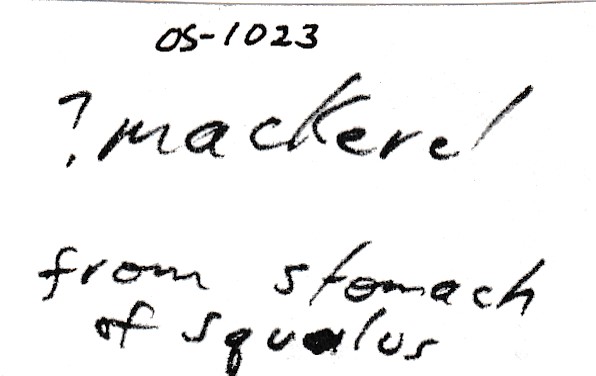 OS-1023
? mackerel
from stomach
of squalus